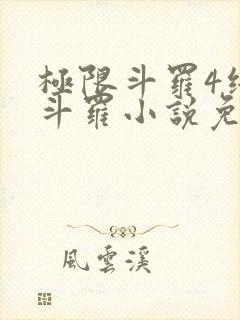 極限斗羅4
斗羅小說免
風雲溪